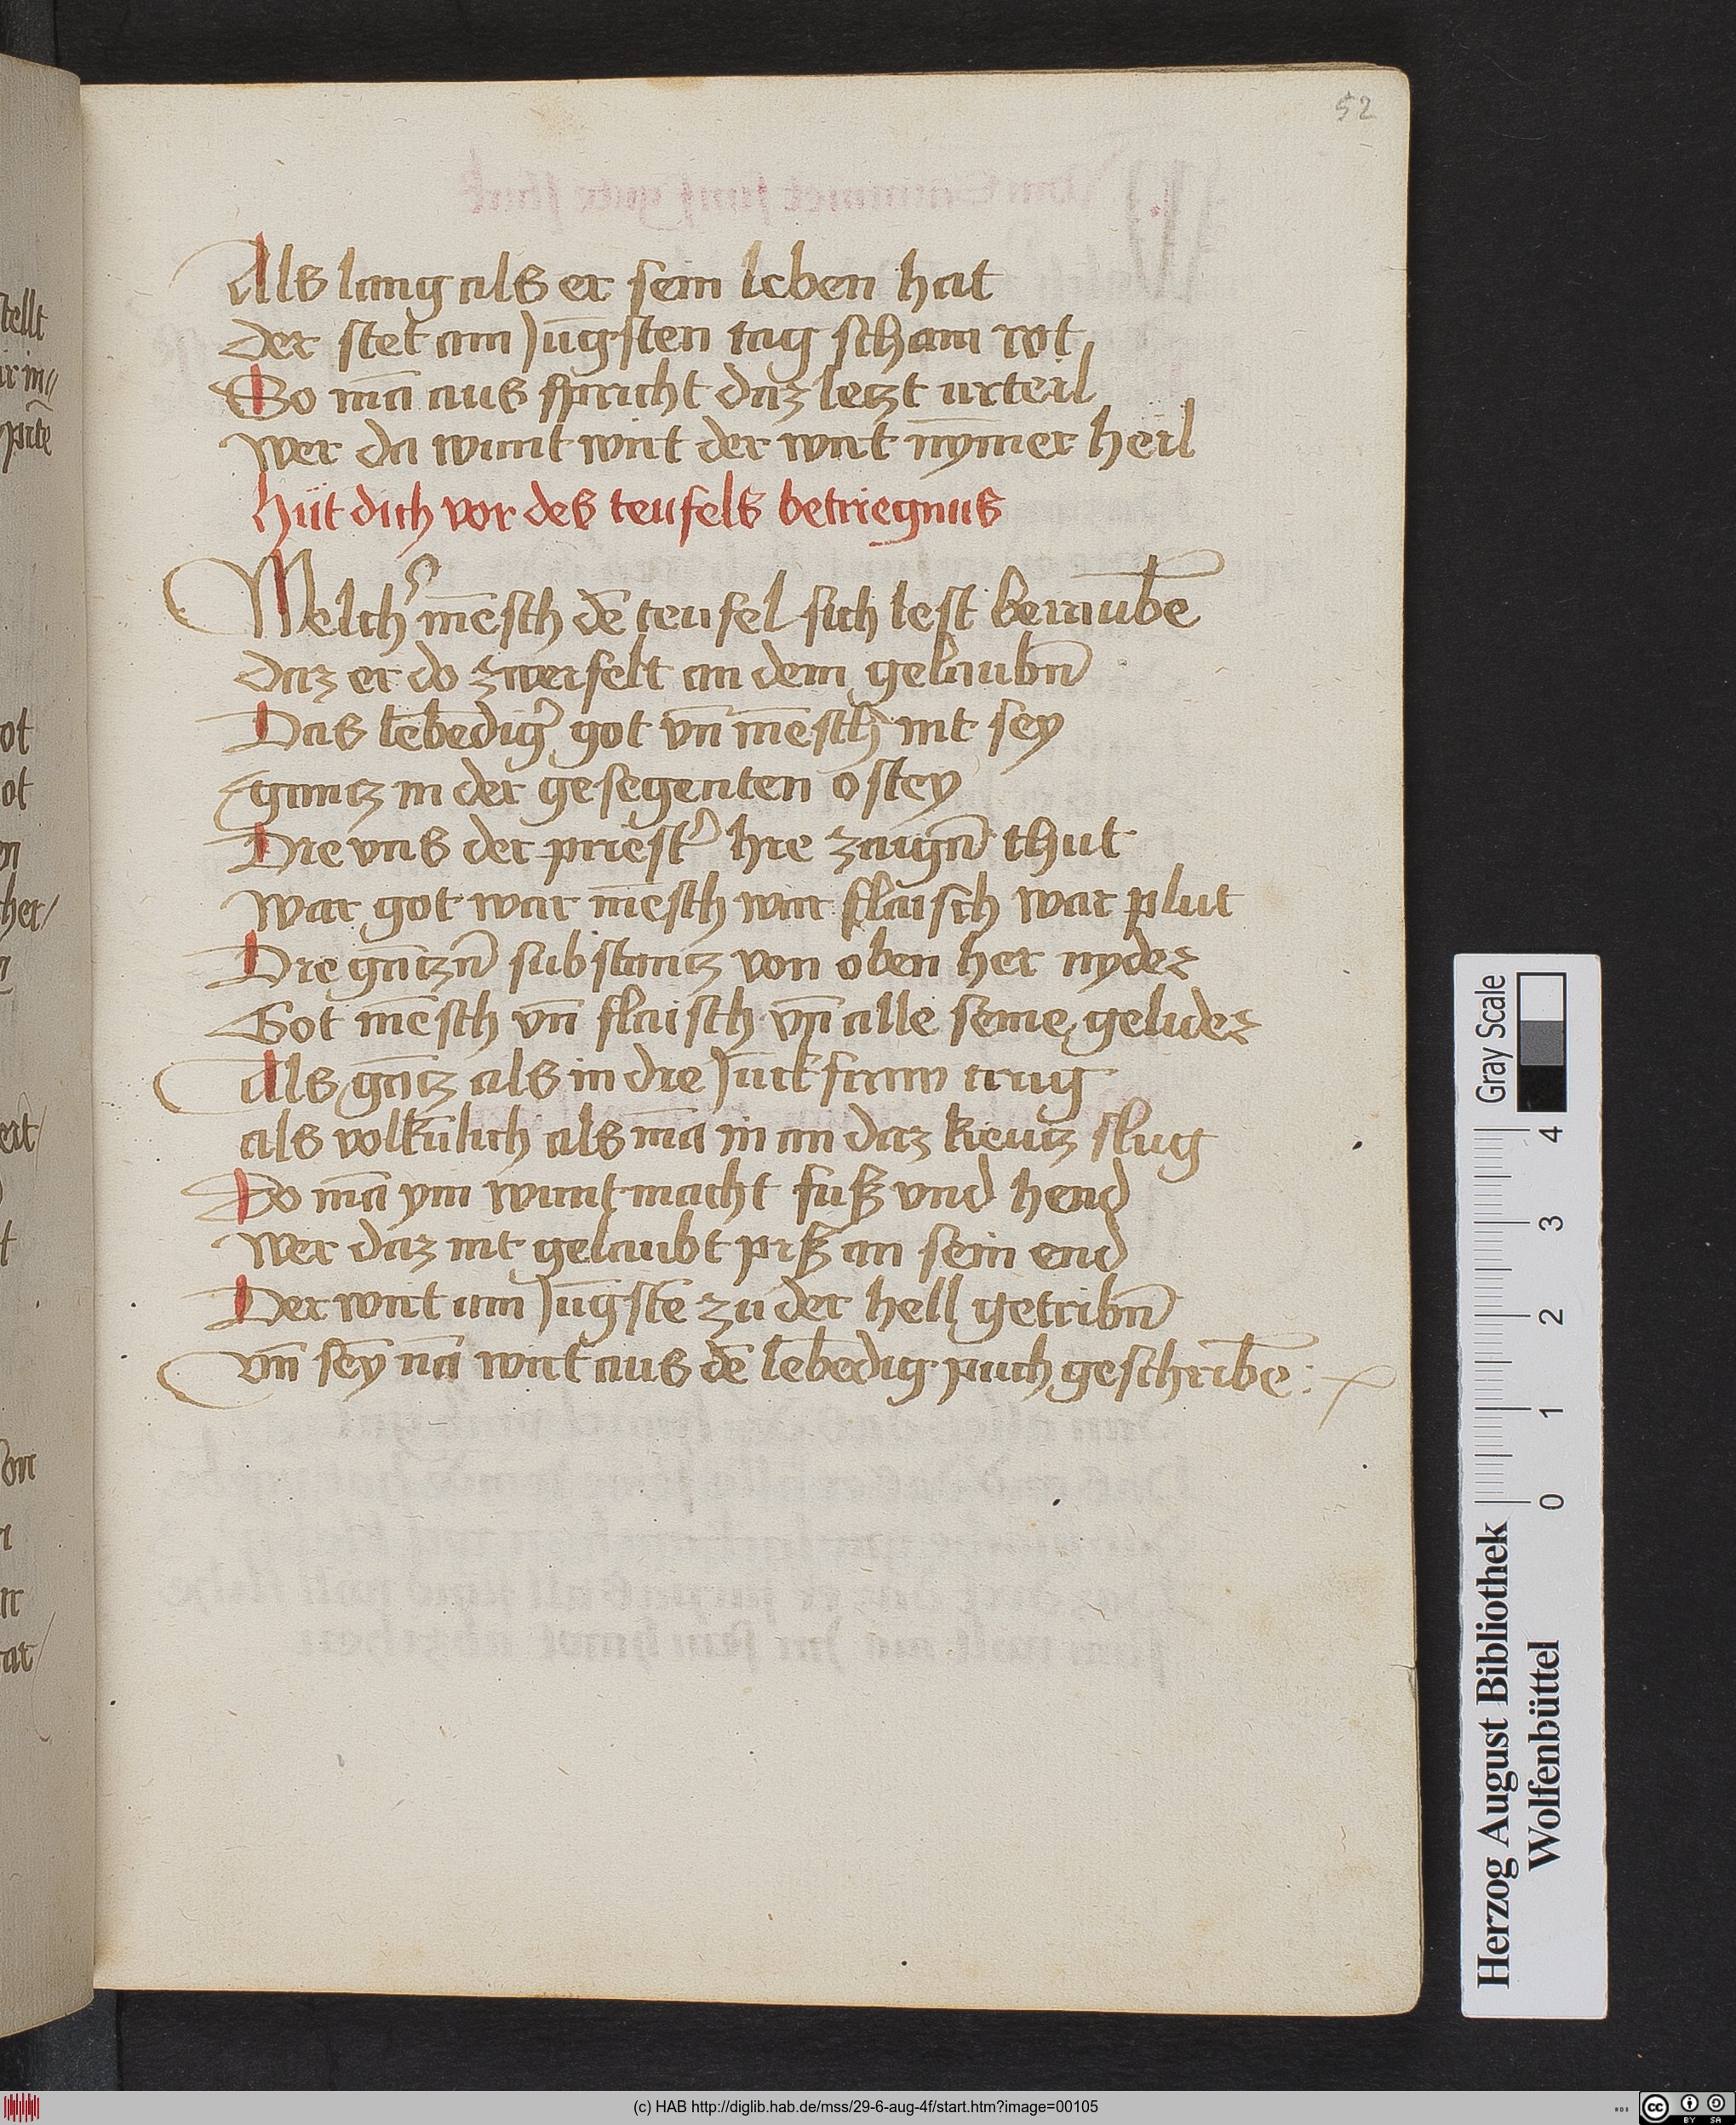 52
Als lang als er sein leben hat
der stet am Jūgsten tag scham rot
So mā aus spricht daz letzt urteil
wer da wunt wirt der wirt nȳmer heil
Hüt dich vor des teufels betriegnus
Welchʾ mēsch dē teufel sich lest berraubē
daz er do zweifelt an dem gelaubn̄
Das lebēdigʾ got vn̄ mēsch nit sey
gantz in der gesegenten ostey
Die vns der priestʾ hie zaign̄ thut
war got war mēsch war flaisch war plut
Die gātzn̄ substantz von oben her nyder
Got mēsch vn̄ flaisch vn̄ alle seine gelider
Als gātz als in die Jūckfraw trug
als volkūlich als mā in an daz kreutz slug
Do mā ym wunt macht fuß vnd hend
wer daz nit gelaubt piß an sein end
Der wirt am Jūgstē zu der hell getribn̄
vn̄ sey̅ nā wirt aus dē lebēdig puch geschribē :
Gray Scale
Herzog August Bibliothek
Wolfenbüttel
0 1 2 3 4
(c) HAB http://diglib.hab.de/mss/29-6-aug-4f/start.htm?image=00105